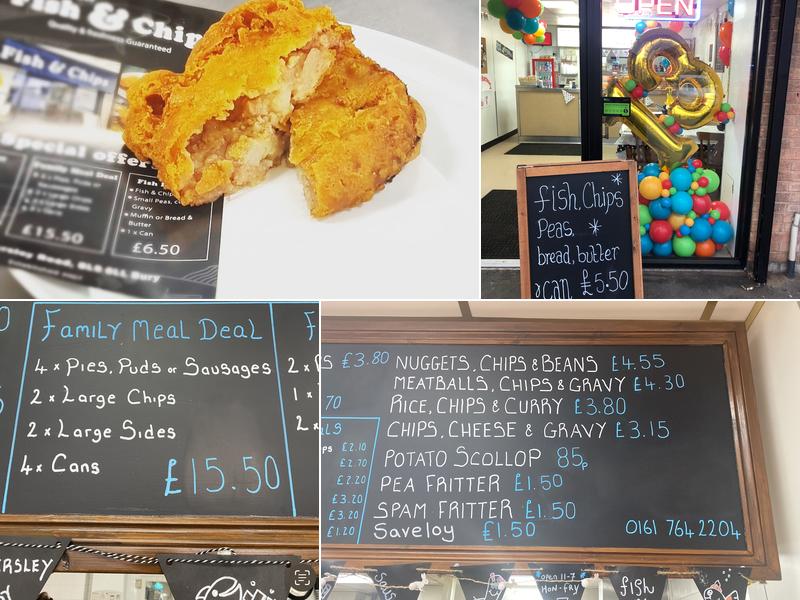 Fish & Chip
Quality & Freshness Guaranteed
Fish & Chips
Special offer
Meal Deal
£15.50
Fish
Fish & Chip
Small Peas,
Gravy
Muffin or Bread &
Butter
1 x Can
£6.50
Road, BL9 Bury
OPEN
fish, Chips
Peas.
bread, butter
can £5.50
Family Meal Deal
4 x Pies, Puds or Sausages
2 x Large Chips
2 x Large Sides
4 x Cans
£15.50
F
2 x
1 x
2 x
ERSLEY
S £3.80
70
LS
ps £2.10
£2.70
£2.20
£3.20
£3.20
£1.20
NUGGETS, CHIPS & BEANS £4.55
MEATBALLS, CHIPS & GRAVY £4.30
RICE, CHIPS & CURRY £3.80
CHIPS, CHEESE & GRAVY £3.15
POTATO SCOLLOP 85p
PEA FRITTER £1.50
SPAM FRITTER £1.50
Saveloy £1.50
0161 764 2204
OPEN 11-7
MON-FRY
fish